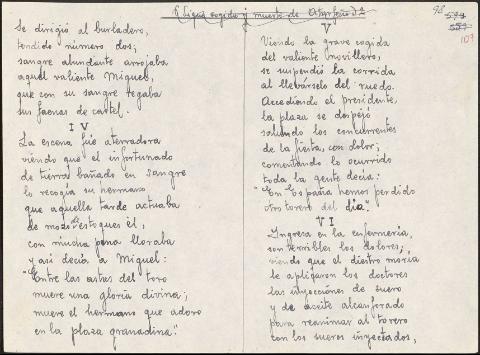 Sigue cogida y muerte de Atarfeño 32
98
107
Se dirigió al burladero,
tendido número dos;
sangre abundante arrojaba
aquel valiente Miguel,
que con su sangre regaba
sus faenas de cartel.
IV
La escena fué aterradora
viendo que el infortunado
de tierra bañado en sangre
lo recogía su hermano
que aquella tarde actuaba
de mozo de estoques él,
con mucha pena lloraba
y así decía a Miguel:
"Entre las astas del toro
muere una gloria divina;
muere el hermano que adoro
en la plaza granadina".
V
Viendo la grave cogida
del valiente novillero,
se suspendió la corrida
al llevárselo del ruedo.
Accediendo el presidente,
la plaza se despejó
saliendo los concurrentes
de la fiesta, con dolor;
comentando lo ocurrido
toda la gente decía:
"En España hemos perdido
otro torero del día".
VI
Ingresa en la enfermería,
son terribles los dolores;
viendo que el diestro moría
le aplicaron los doctores
las inyecciones de suero
y de aceite alcanforado
para reanimar al torero
con los sueros inyectados,